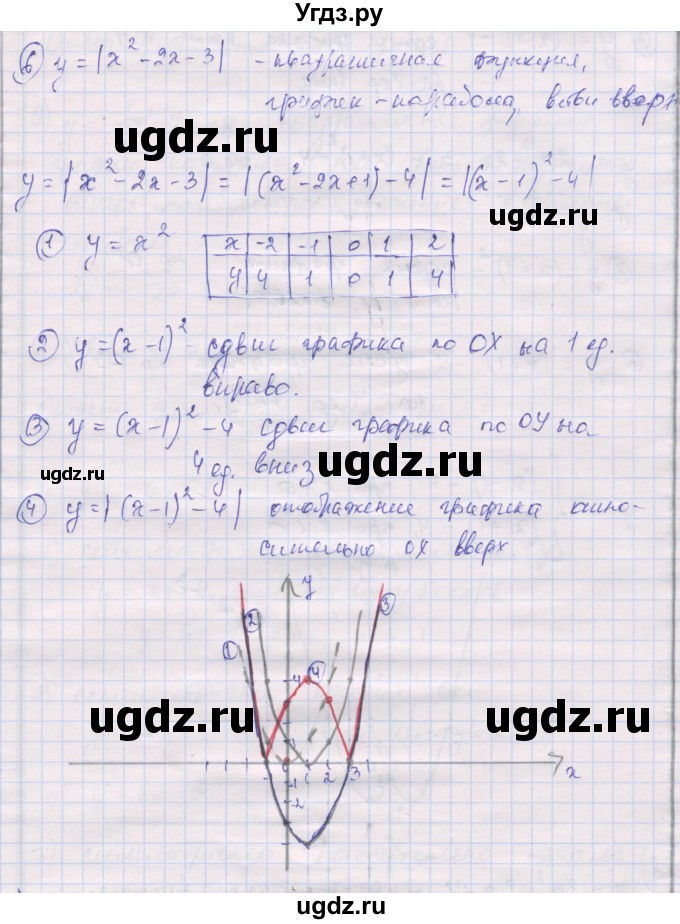 Угдз.ру
6 y = |x² - 2x - 3| - квадратичная функция,
график - парабола, ветви вверх
ugdz.ru
y = |x² - 2x - 3| = |(x² - 2x + 1) - 4| = |(x - 1)² - 4|
ugdz.ru
1 y = x²
x -2 -1 0 1 2
y 4 1 0 1 4
2 y = (x - 1)² сдвиг графика по OX на 1 ед.
вправо.
3 y = (x - 1)² - 4 сдвиг графика по OY на
ugdz.ru
4 ед. вниз
ugdz.ru
4 y = |(x - 1)² - 4| отображение графика отно-
сительно OX вверх.
y
2 3
1
4 4
ugdz.ru
ugdz.ru
1 2 3 x
-1
-2
ugdz.ru